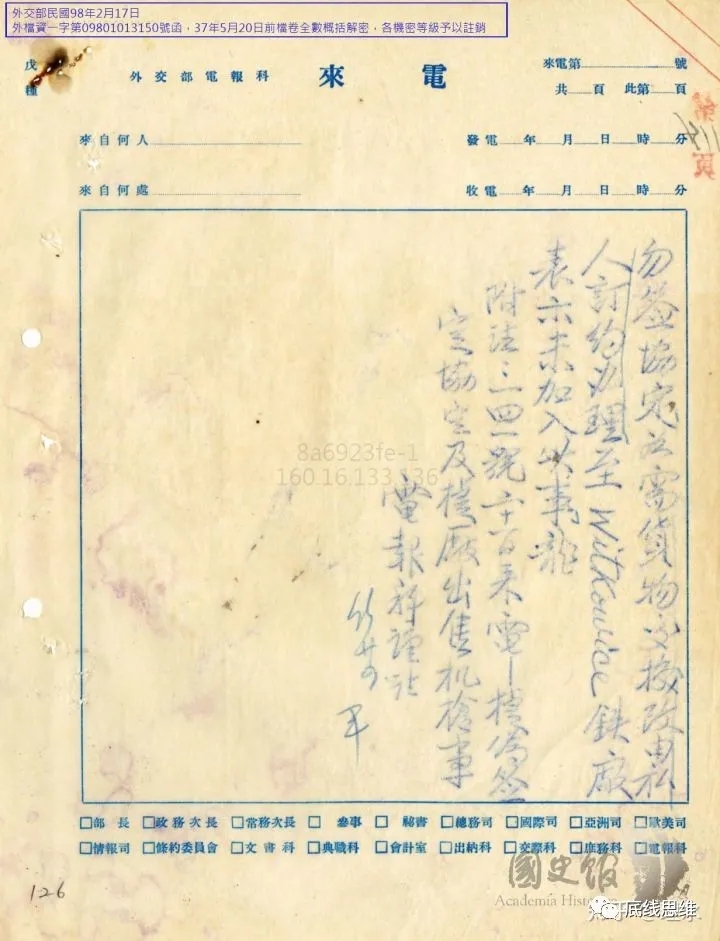 外交部民國98年2月17日
外檔資一字第09801013150號函，37年5月20日前檔卷全數概括解密，各機密等級予以註銷
戊種
外交部電報科
來電
來電第 號
共 頁 此第 頁
第 頁
來自何人
發電 年 月 日 時 分
來自何處
收電 年 月 日 時 分
勿簽協定必需貨物交換改用私
人訂約办理至 Witkowice 鉄廠
表亦未加入此事
附注三四一號 来電 捷偽簽
定協定及捷廠出售机槍事
電報科謹註
8a6923fe-1
160.16.133.136
□部長 □政務次長 □常務次長 □參事 □秘書 □總務司 □國際司 □亞洲司 □歐美司
□情報司 □條約委員會 □文書科 □典職科 □會計室 □出納科 □交際科 □庶務科 □電報科
126
國史館
Academia Hist
底线思维